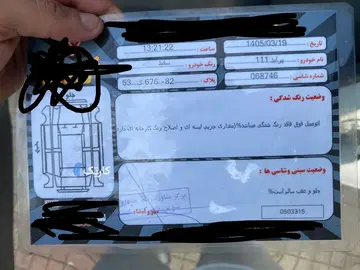 تاریخ : 1405/03/19
ساعت : 13:21:22
نام خودرو : پراید 111
رنگ خودرو : سفید
شماره شاسی : 068746
پلاک :
جلو
کارتک
وضعیت رنگ شدگی :
اتومبیل فوق فاقد رنگ شدگی میباشد%(مقداری جزیی لیسه ای و اصلاح رنگ کارخانه ای
وضعیت سینی وشاسی ها :
جلو و عقب سالم است%
0503315